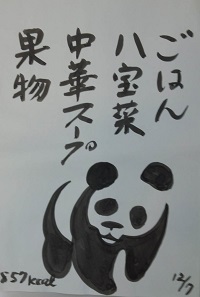 ごはん
八宝菜
中華スープ
果物
857kcal
12/7